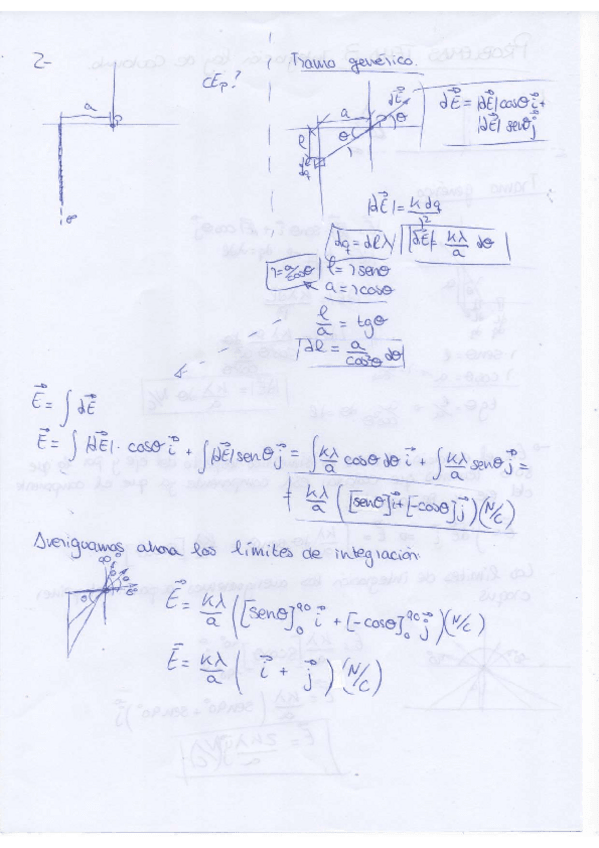 2-
a
P
∞
¿E⃗p?
Tramo genérico.
a
dE⃗
θ
θ
l
r
dq
dE⃗ = |dE⃗| cosθ i⃗ +
|dE⃗| senθ j⃗
|dE⃗| = K dq / r²
dq = dl λ
|dE⃗| = Kλ/a dθ
r = a/cosθ
l = r senθ
a = r cosθ
l/a = tgθ
dl = a/cos²θ dθ
E⃗ = ∫ dE⃗
E⃗ = ∫ |dE⃗| · cosθ i⃗ + ∫ |dE⃗| senθ j⃗ = ∫ Kλ/a cosθ dθ i⃗ + ∫ Kλ/a senθ j⃗ =
= Kλ/a ([senθ] i⃗ + [-cosθ] j⃗) (N/C)
Averiguamos ahora los límites de integración
E⃗ = Kλ/a ([senθ]₀⁹⁰ i⃗ + [-cosθ]₀⁹⁰ j⃗) (N/C)
E⃗ = Kλ/a ( i⃗ + j⃗ ) (N/C)